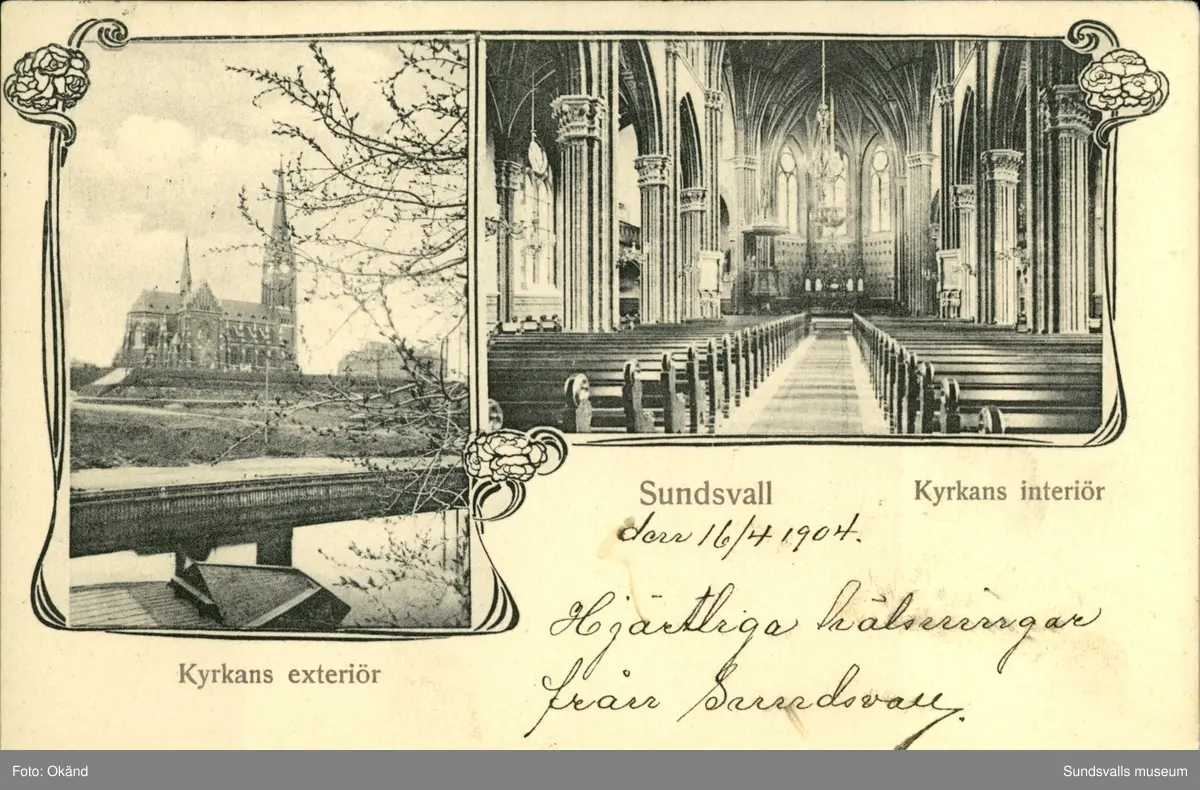 Sundsvall
Kyrkans interiör
den 16/4 1904.
Hjärtliga hälsningar
från Sundsvall.
Kyrkans exteriör
Foto: Okänd
Sundsvalls museum